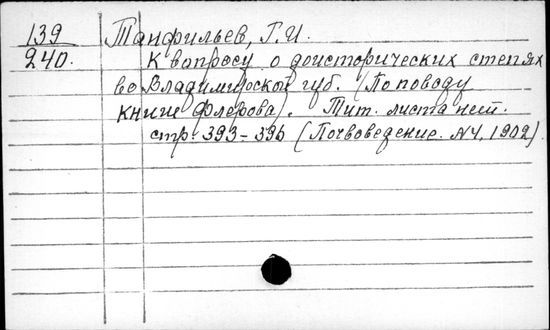 139 Танфильев, Г.И.
240. К вопросу о доисторических степях
во Владимирской губ. (По поводу
книги Флерова). Тит. листа нет.
стр. 393-396 (Почвоведение. №4, 1902).